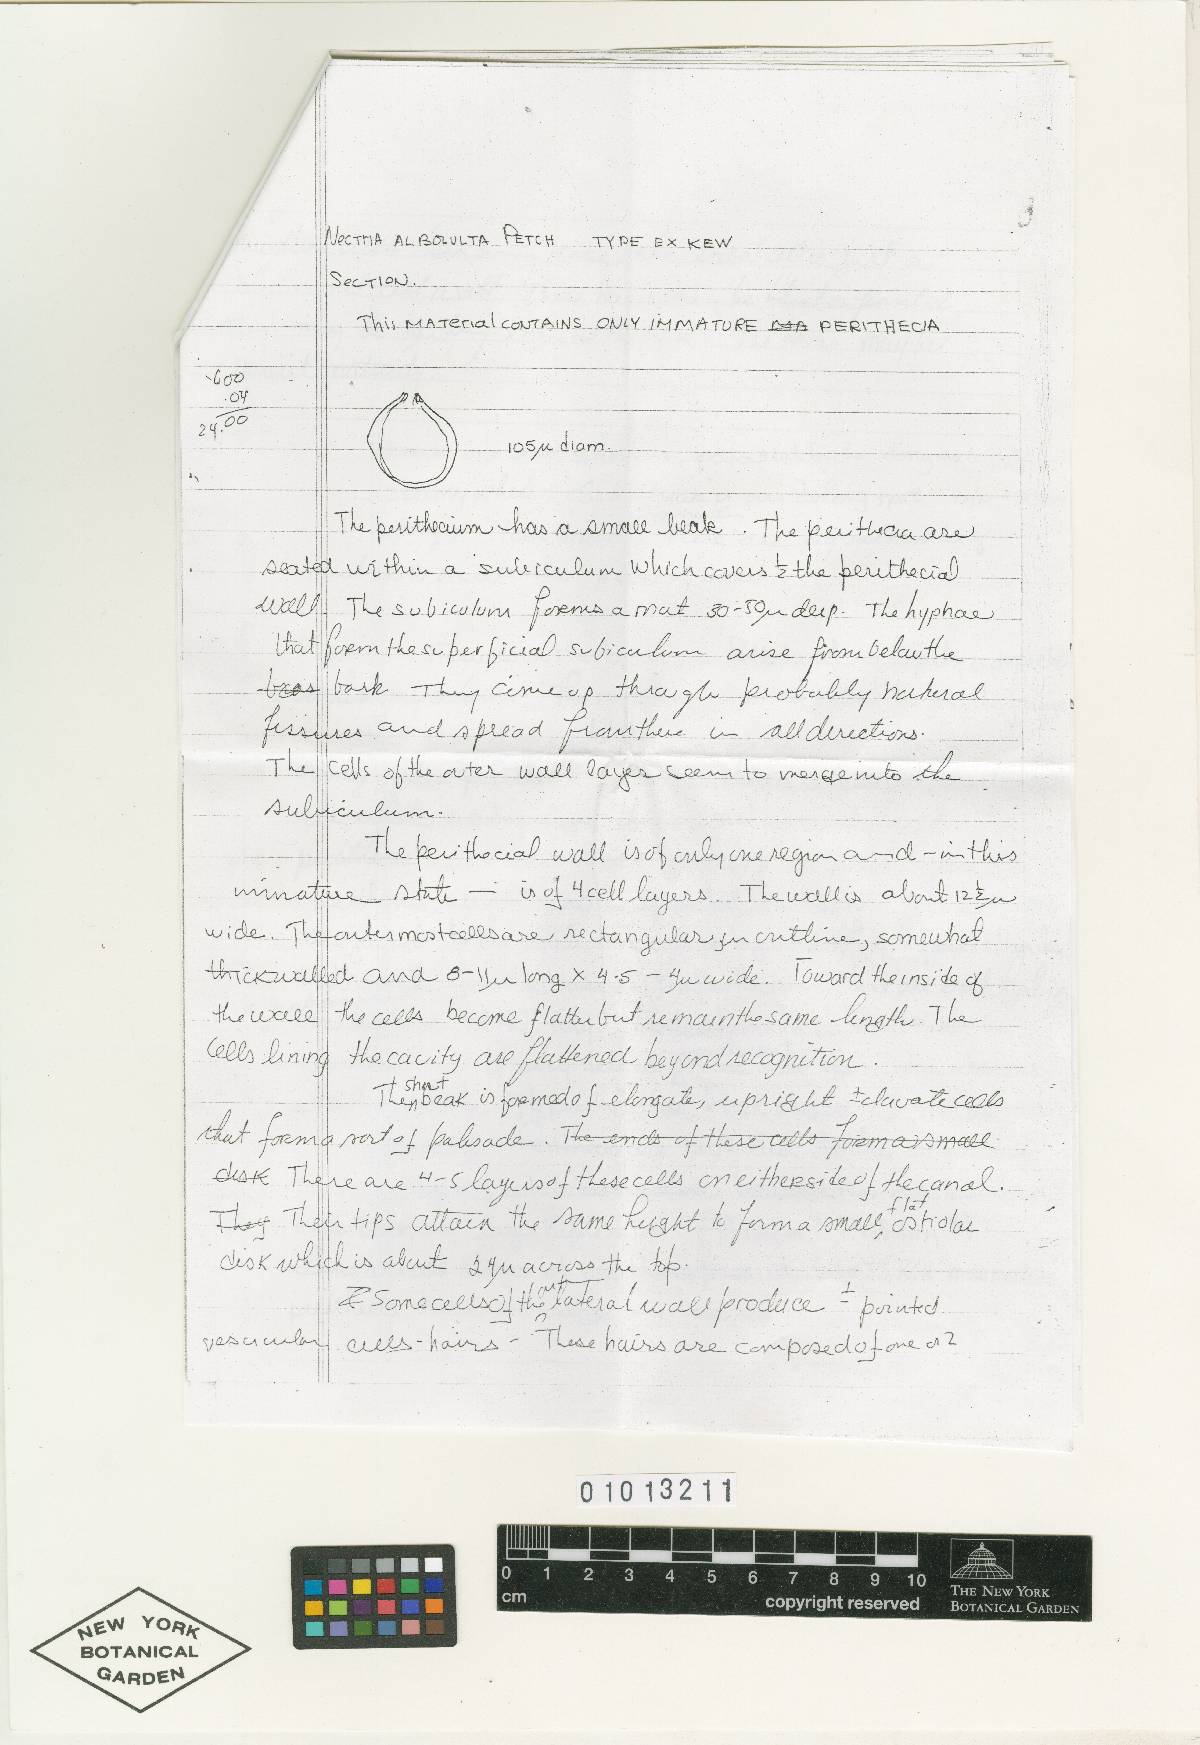 NECTRIA ALBOVULTA PETCH TYPE EX KEW
SECTION.
This MATERIAL CONTAINS ONLY IMMATURE PERITHECIA
.600
.04
24.00
105µ diam.
The perithecium has a small beak. The perithecia are
seated within a subiculum which covers ½ the perithecial
wall. The subiculum forms a mat 30-50µ deep. The hyphae
that form the superficial subiculum arise from below the
bark They come up through probably natural
fissures and spread from there in all directions.
The cells of the outer wall layer seem to merge into the
subiculum.
The perithecial wall is of only one region and - in this
immature state - is of 4 cell layers. The wall is about 12½µ
wide. The outermost cells are rectangular in outline, somewhat
thick walled and 8-11µ long × 4.5 - 4µ wide. Toward the inside of
the wall the cells become flatter but remain the same length. The
cells lining the cavity are flattened beyond recognition.
The short beak is formed of elongate, upright ± clavate cells
that form a sort of palisade. The ends of these cells form a small
disk There are 4-5 layers of these cells on either side of the canal.
They Their tips attain the same height to form a small, flat ostiolar
disk which is about 24µ across the top.
Some cells of the lateral wall produce ± pointed
vesicular cells-hairs - These hairs are composed of one or 2
01013211
0 1 2 3 4 5 6 7 8 9 10
cm
copyright reserved
THE NEW YORK
BOTANICAL GARDEN
NEW YORK
BOTANICAL
GARDEN